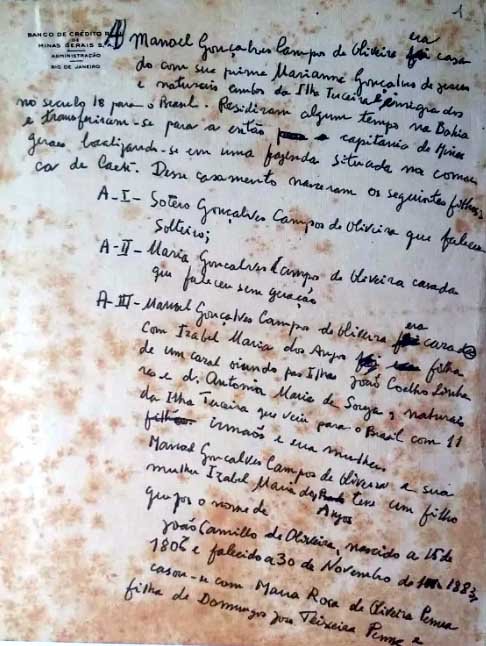 1
BANCO DE CRÉDITO REAL DE
MINAS GERAIS S. A.
ADMINISTRAÇÃO
RIO DE JANEIRO
A) Manoel Gonçalves Campos de Oliveira era casa
do com sua prima Marianna Gonçalves de Jesus
e naturais ambos da Ilha Terceira, emigrados
no seculo 18 para o Brasil. Residiram algum tempo na Bahia
e transferiram-se para a então capitania de Minas
gerais, localizando-se em uma fazenda situada na comar
ca de Caeté. Desse casamento nasceram os seguintes filhos:
A-I- Sotero Gonçalves Campos de Oliveira que faleceu
Solteiro;
A-II- Maria Goncalves Campos de Oliveira casada
que faleceu sem geração
A-III- Manoel Gonçalves Campos de Oliveira era casado
com Izabel Maria dos Anjos filha
de um casal vindo das Ilhas João Coelho Linha
res e d. Antonia Maria de Souza, naturaes
da Ilha Terceira que veiu para o Brasil com 11
filhos irmãos e sua mulher.
Manoel Goncalves Campos de Oliveira e sua
mulher Izabel Maria dos Anjos teve um filho
que poz o nome de
João Camillo de Oliveira, nascido a 15 de
1806 e falecido a 30 de Novembro de 1883,
casou-se com Maria Rosa de Oliveira Penna
filha de Domingos José Teixeira Penna e